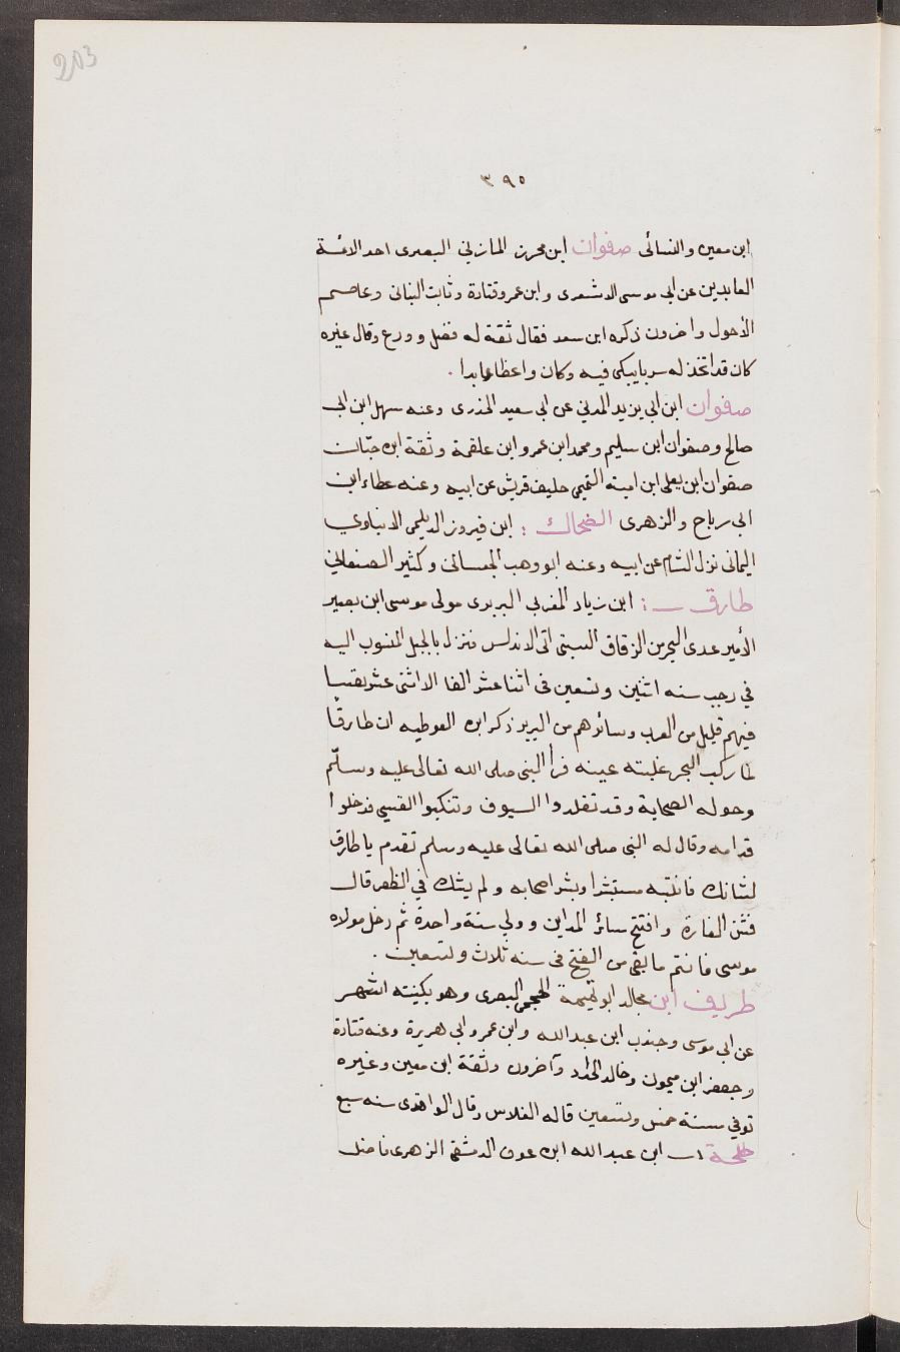 203
٣٩٥
ابن معين والنسائى صفوان ابن محرز المازني البصرى احد الائمة
العابدين عن ابي موسى الاشعرى وابن عمر وقتادة وثابت البنانى وعاصم
الأحول واخرون ذكره ابن سعد فقال ثقة له فضل وورع وقال غيره
كان قد اتخذ له سربا يبكى فيه وكان واعظا عابدا .
صفوان ابن ابي يزيد المدني عن ابي سعيد الخدرى وعنه سهل ابن ابى
صالح وصفوان ابن سليم ومحمد ابن عمرو ابن علقمة وثقة ابن حبّان
صفوان ابن يعلى ابن امية التميمى حليف قريش عن ابيه وعنه عطاء ابن
ابى رباح والزهرى الضحاك : ابن فيروز الديلمى الابناوي
اليمانى نزل الشام عن ابيه وعنه ابو وهب الجيسانى وكثير الصنعاني
طارق : ابن زياد المغربي البربرى مولى موسى ابن نصير
الأمير عدى البحر من الزقاق السبتى اتى الاندلس فنزل بالجبل المنسوب اليه
في رجب سنه اثنين وتسعين فى اثنا عشر الفا الا اثنى عشر نفسا
فيهم قليل من العرب وسائرهم من البربر ذكر ابن القوطيه ان طارقا
لما ركب البحر غلبته عينه فرأ النبى صلى الله تعالى عليه وسلّم
وحوله الصحابة وقد تقلدوا السيوف وتنكبوا القسى فدخلوا
قدامه وقال له النبى صلى الله تعالى عليه وسلم تقدم يا طارق
لشانك فانتبه مستبشرا وبشر اصحابه ولم يشك في الظفر قال
فشن الغارة وافتتح سائر المداين وولي سنة واحدة ثم دخل مولاه
موسى فانتم ما بقى من الفتح فى سنه ثلاث وتسعين .
طريف ابن مجالد ابو تميمة الهجيمى البصرى وهو بكنيته اشهر
عن ابي موسى وجندب ابن عبدالله وابن عمر وابي هريرة وعنه قتادة
وجعفر ابن ميمون وخالد الحذاء وآخرون وثقة ابن معين وغيره
توفي سنة خمس وتسعين قاله الفلاس وقال الواقدى سنه سبع
طلحة ابن عبدالله ابن عوف الدمشقى الزهرى فاضل